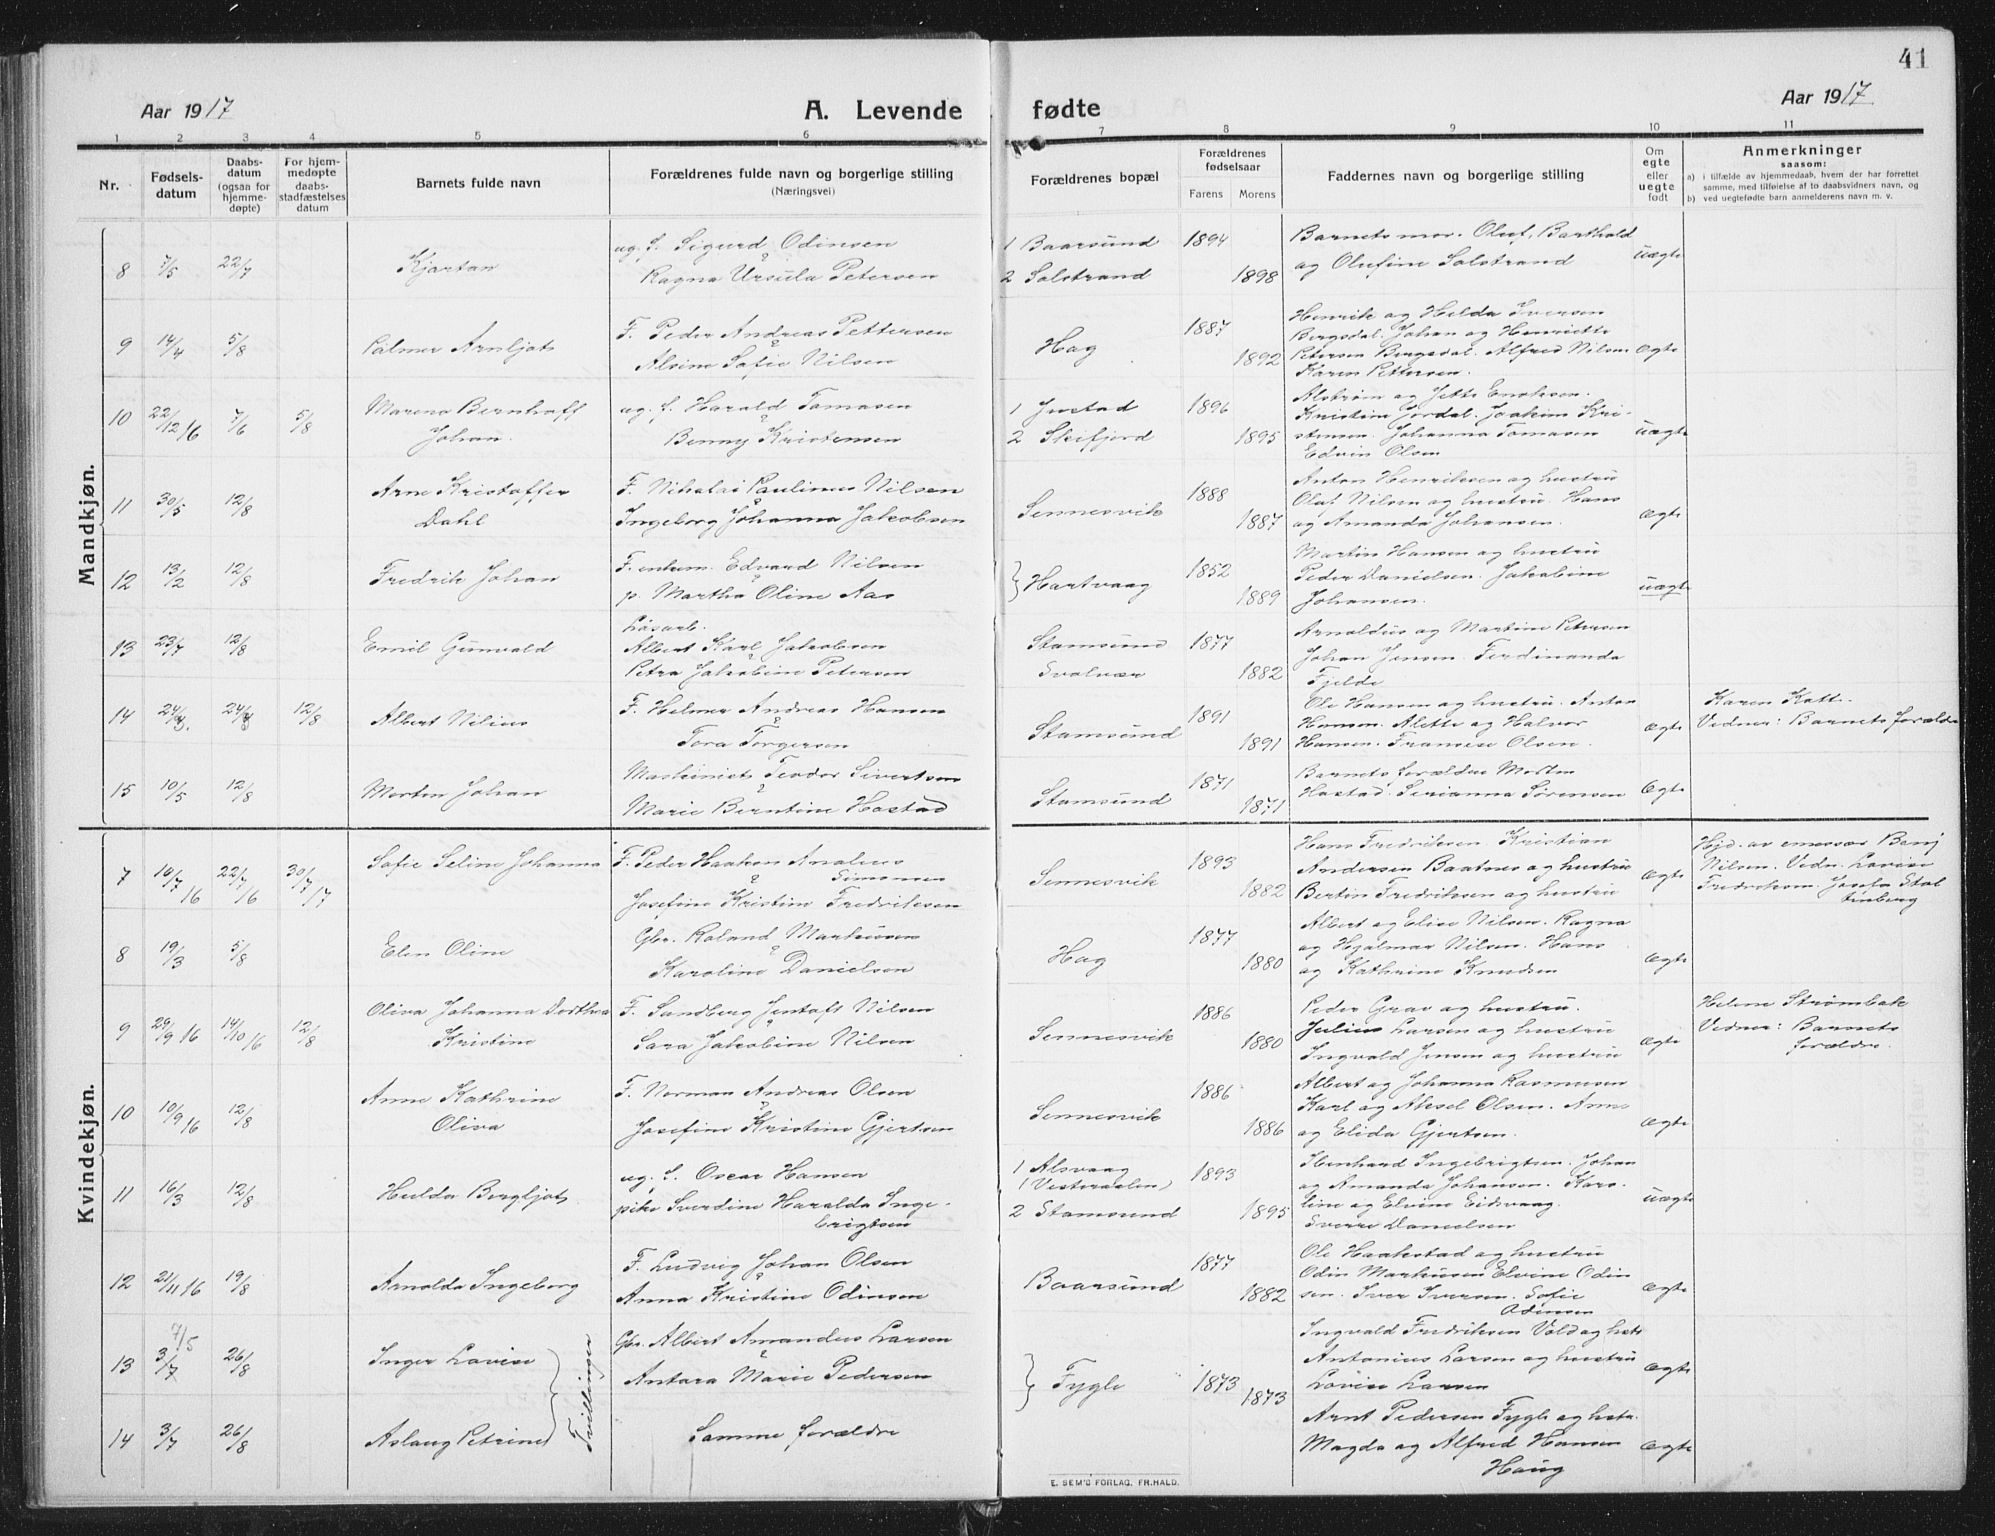 41
Aar 1917
A. Levende fødte
Aar 1917
1 2 3 4 5 6 7 8 9 10 11
Nr.
Fødsels-
datum
Daabs-
datum
(ogsaa for
hjemme-
døpte)
For hjem-
medøpte
daabs-
stadfæstelses
datum
Barnets fulde navn
Forældrenes fulde navn og borgerlige stilling
(Næringsvei)
Forældrenes bopæl
Forældrenes
fødselsaar
Farens Morens
Faddernes navn og borgerlige stilling
Om
egte
eller
uegte
født
Anmerkninger
saasom:
a) i tilfælde av hjemmedaab, hvem der har forrettet
samme, med tilføielse af to daabsvidners navn, og
b) ved uegtefødte barn anmelderens navn m. v.
Mandkjøn.
8 7/5 22/7 Kjartan
ug. f. Sigurd Odinsen
& Ragna Ursula Petersen
1 Baarsund 1894
2 Solstrand 1898
Barnets mor. Oluf, Barthold
og Olufine Solstrand
uægte
9 14/4 5/8 Palmer Arnljot
F. Peder Andreas Pettersen
& Alvine Sofie Nilsen
Hag 1887 1892
Henrik og Helda Iversen
Bergsdal. Johan og Henriette
Petersen Bergsdal. Alfred Nilsen
Karen Pettersen.
ægte
10 22/12 16 7/6 5/8 Mareno Bernhoff
Johan.
ug. f. Harald Tomasen
& Benny Kristensen
1 Justad 1896
2 Skifjord 1895
Alstrøm og Jette Enoksen.
Kristine Jordal. Joakim Kri-
stensen. Johanna Tomasen
Edvin Olsen
uægte
11 30/5 12/8 Arne Kristoffer
Dahl
F. Nikolai Paulinus Nilsen
Ingeborg Johanna Jakobsen
Sennesvik 1888 1887
Anton Henriksen og hustru
Olaf Nilsen og hustru. Hans
og Amanda Johansen.
ægte
12 13/2 12/8 Fredrik Johan
F. enkem. Edvard Nilsen
& p. Martha Oline Aas
Hartvaag 1852 1889
Martin Hansen og hustru
Peder Danielsen. Jakobine
Johansen.
uægte
13 23/7 12/8 Emil Gunvald
Løsarb.
Albert Karl Jakobsen
& Petra Jakobine Petersen
Stamsund 1877
Svolvær 1882
Arnoldus og Martine Petersen
Johan Jensen. Ferdinanda
Fjelde
14 24/ 24/ 12/8 Albert Nilius
F. Helmer Andreas Hansen
& Tora Torgersen
Stamsund 1891 1891
Ole Hansen og hustru. Anton
Hansen. Alette og Halvor
Hansen. Fransese Olsen.
ægte
Karen Kott.
Vidner: Barnets forældre
15 10/5 12/8 Morten Johan
Maskinist Teodor Sivertsen
& Marie Berntine Hostad
Stamsund 1871 1871
Barnets forældre Morten
Hostad. Serianna Sørensen
ægte
Kvindekjøn.
7 16/7 16 22/7 16 30/7 17 Sofie Seline Johanna
F. Peder Haakon Analius
Simonsen
& Josefine Kristine Fredriksen
Sennesvik 1893 1882
Hans Fredriksen. Kristian
Andersen Baatnes og hustru
Bertin Fredriksen og hustru
ægte
Hjd. av emessær Benj
Nilsen. Vidn. Lovise
Fredriksen. Josefa Stol
tenberg
8 19/3 5/8 Elen Oline
Gbr. Roland Markussen
& Karoline Danielsen
Hag 1877 1880
Albert og Elise Nilsen. Ragna
og Hjalmar Nilsen. Hans
og Kathrine Knudsen
ægte
9 29/9 16 14/10 16 12/8 Oliva Johanna Dorthea
Kristine
F. Sandberg Jentoft Nilsen
& Sara Jakobine Nilsen
Sennesvik 1886 1880
Peder Grav og hustru.
Julius Larsen og hustru
Ingvald Jensen og hustru
ægte
Helene Strømbak
Vidner: Barnets
forældre.
10 10/9 16 12/8 Anne Kathrine
Oliva
F. Norman Andreas Olsen
& Josefine Kristine Gjertsen
Sennesvik 1886 1886
Albert og Johanna Rasmusen
Karl og Aksel Olsen. Anne
og Elida Gjertsen.
ægte
11 16/3 12/8 Hulda Bergljot
ug. f. Oscar Hansen
pike Sverdine Haralda Inge-
brigtsen
1 Alsvaag
(Vesteraalen) 1893
2 Stamsund 1895
Bernhard Ingebrigtsen. Johan
og Amanda Johansen. Karo-
line og Elvine Eidsvaag.
Sverre Danielsen
uægte
12 21/11 16 19/8 Arnolda Ingeborg
F. Ludvig Johan Olsen
& Anna Kristine Odinsen
Baarsund 1877 1882
Ole Haakstad og hustru
Odin Markussen Elvine Odin
sen. Iver Iversen. Sofie
Odinsen
ægte
7/5
13 3/7 26/8 Inger Lovise
Tvillinger
Gbr. Albert Amandus Larsen
& Antora Marie Pedersen
Fygle 1873 1873
Ingvald Fredriksen Vold og hstr
Antonius Larsen og hustru
Lovise Larsen
ægte
14 3/7 26/8 Aslaug Petrine
Samme forældre
Arnt Pedersen Fygle og hstr.
Magda og Alfred Hansen
Haug
ægte
E. SEM'S FORLAG, FR.HALD.